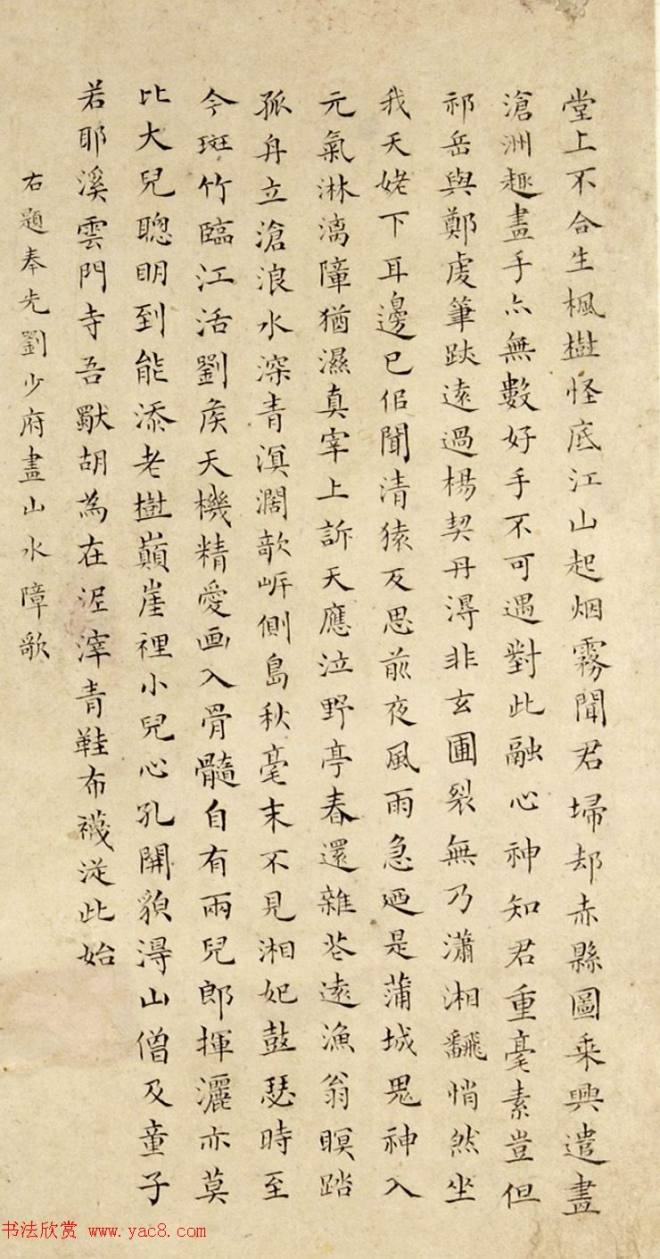 堂上不合生楓樹怪底江山起烟霧聞君埽却赤縣圖乘興遣畫
滄洲趣畫手亦無數好手不可遇對此融心神知君重毫素豈但
祁岳與鄭虔筆跡遠過楊契丹得非玄圃裂無乃瀟湘飜悄然坐
我天姥下耳邊已佀聞清猿反思前夜風雨急迺是蒲城鬼神入
元氣淋漓障猶濕真宰上訴天應泣野亭春還雜花遠漁翁暝踏
孤舟立滄浪水深青溟濶欹岸側島秋毫末不見湘妃鼓瑟時至
今斑竹臨江活劉侯天機精愛画入骨髓自有兩兒郎揮灑亦莫
比大兒聰明到能添老樹巔崖裡小兒心孔開貌得山僧及童子
若耶溪雲門寺吾獨胡為在泥滓青鞋布襪從此始
右題奉先劉少府畫山水障歌
书法欣赏 www.yac8.com